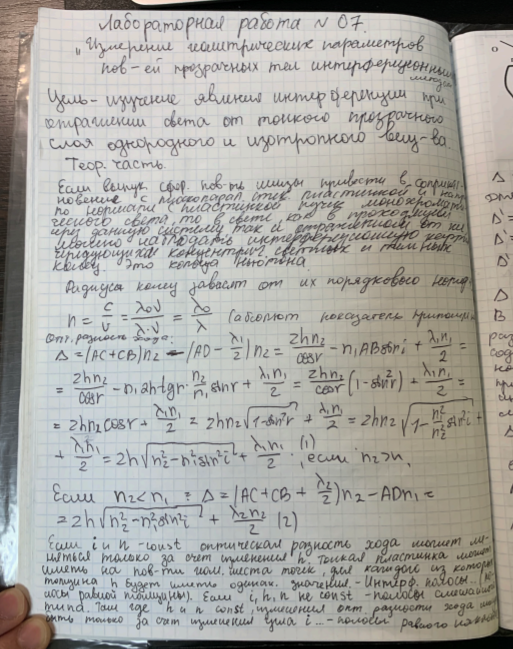 Лабораторная работа N 07.
"Измерение геометрических параметров
пов-ей прозрачных тел интерференционным
методом
Цель- изучение явления интерференции при
отражении света от тонкого прозрачного
слоя однородного и изотропного вещ-ва.
Теор. часть.
Если выпук. сфер. пов-ть линзы привести в соприкос-
новение с плоскопараллел. пластинкой и напр.
по нормали к пластинке пучок монохромати-
ческого света, то в свете, как в проходящем
через данную систему так и отраженном от неё
можно наблюдать интерференционную картину
чередующихся концентрич. светлых и темных
колец. Это кольца Ньютона.
Радиусы колец зависят от их порядкового номера.
n = c/υ = λ₀ν/λ·ν = λ₀/λ (абсолют. показатель преломления
Опт. разность хода:
Δ = (AC+CB)n₂ - (AD - λ₁/2)n₂ = 2hn₂/cosr - n₁ABsini + λ₁n₁/2 =
= 2hn₂/cosr - n₁2htgr · n₂/n₁ sinr + λ₁n₁/2 = 2hn₂/cosr (1-sin²r) + λ₁n₁/2 =
= 2hn₂cosr + λ₁n₁/2 = 2hn₂√1-sin²r + λ₁n₁/2 = 2hn₂√1 - n₁²/n₂² sin²i +
+ λ₁n₁/2 = 2h√n₂²-n₁²sin²i + λ₁n₁/2 (1), если n₂>n₁
Если n₂<n₁ : Δ = (AC+CB + λ₂/2)n₂ - ADn₁ =
= 2h√n₂²-n₁²sin²i + λ₂n₂/2 (2)
Если i и n -const оптическая разность хода может ме-
няться только за счет изменения h. Тонкая пластинка может
иметь на пов-ти геом. места точек, для каждого из которых
толщина h будет иметь одинак. значения. - Интерф. полосы
полосы равной толщины). Если i, h, n не const - полосы смешанного
типа. Там где h и n const, изменения опт. разности хода
только за счет изменения угла i ... - полосы равного наклона